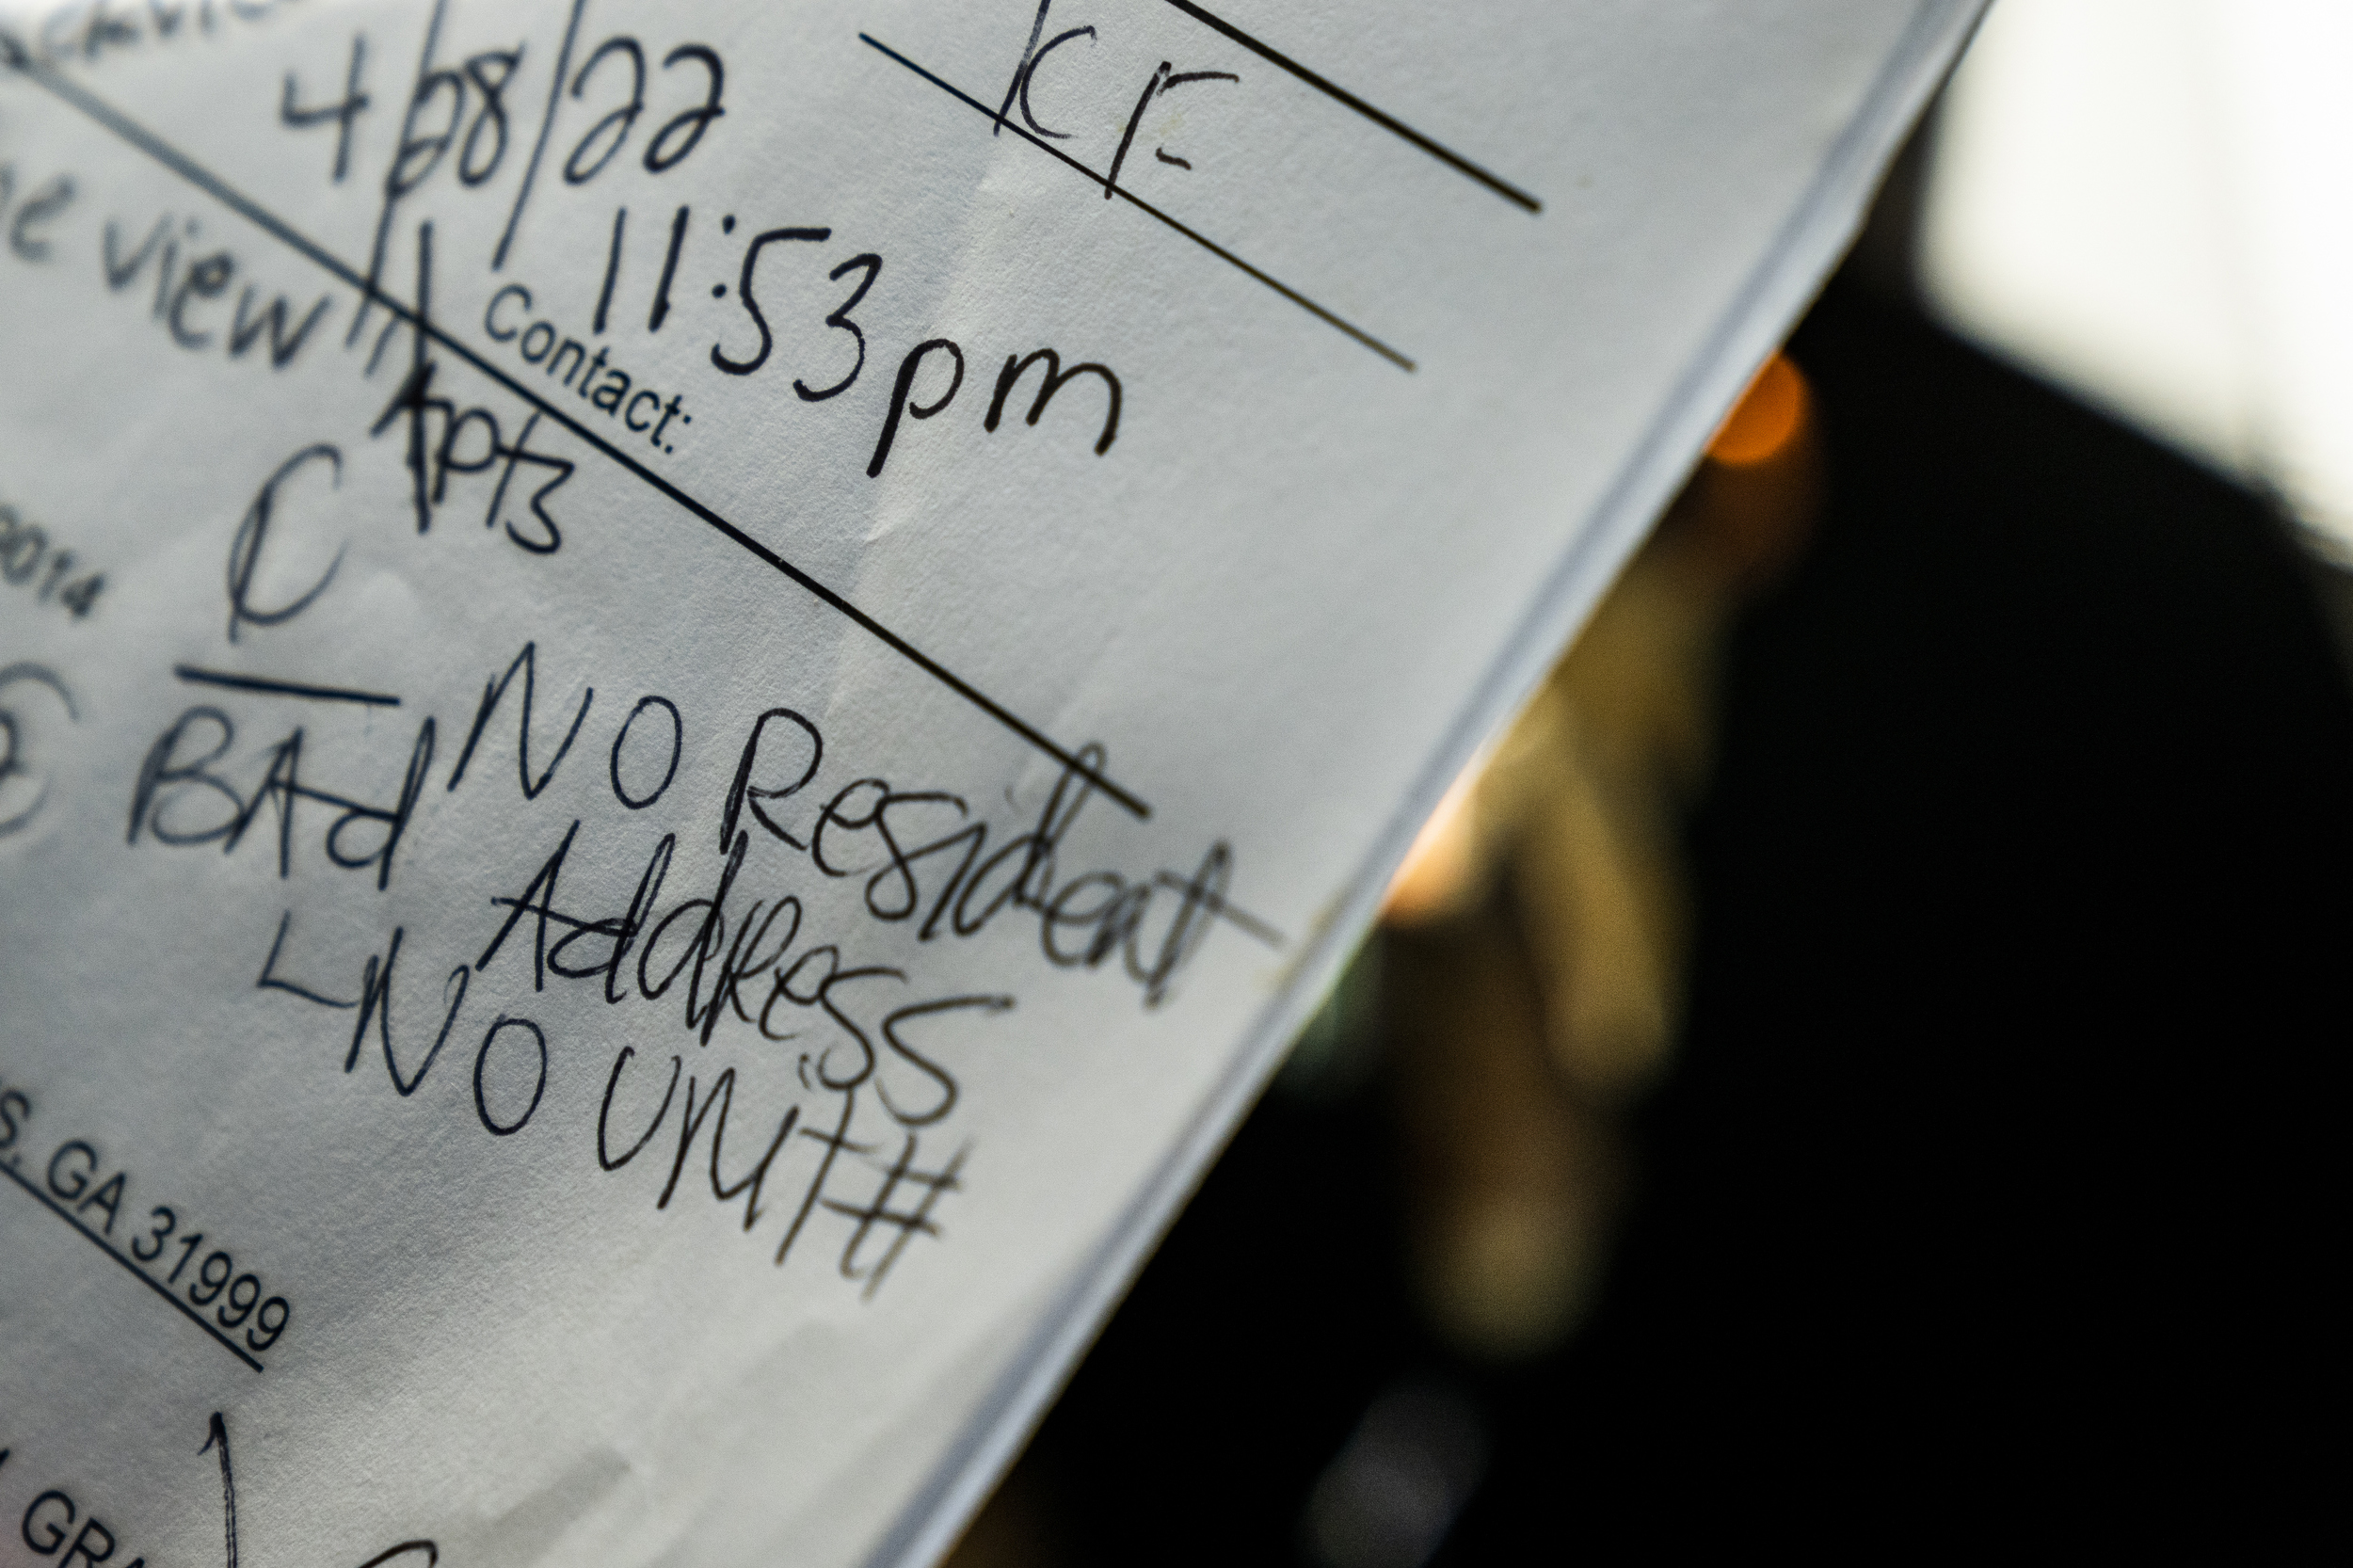 KF
4/28/22
11:53pm
Contact:
view Apts
C
NO Resident
BAd Address
NO UNIT#
GA 31999